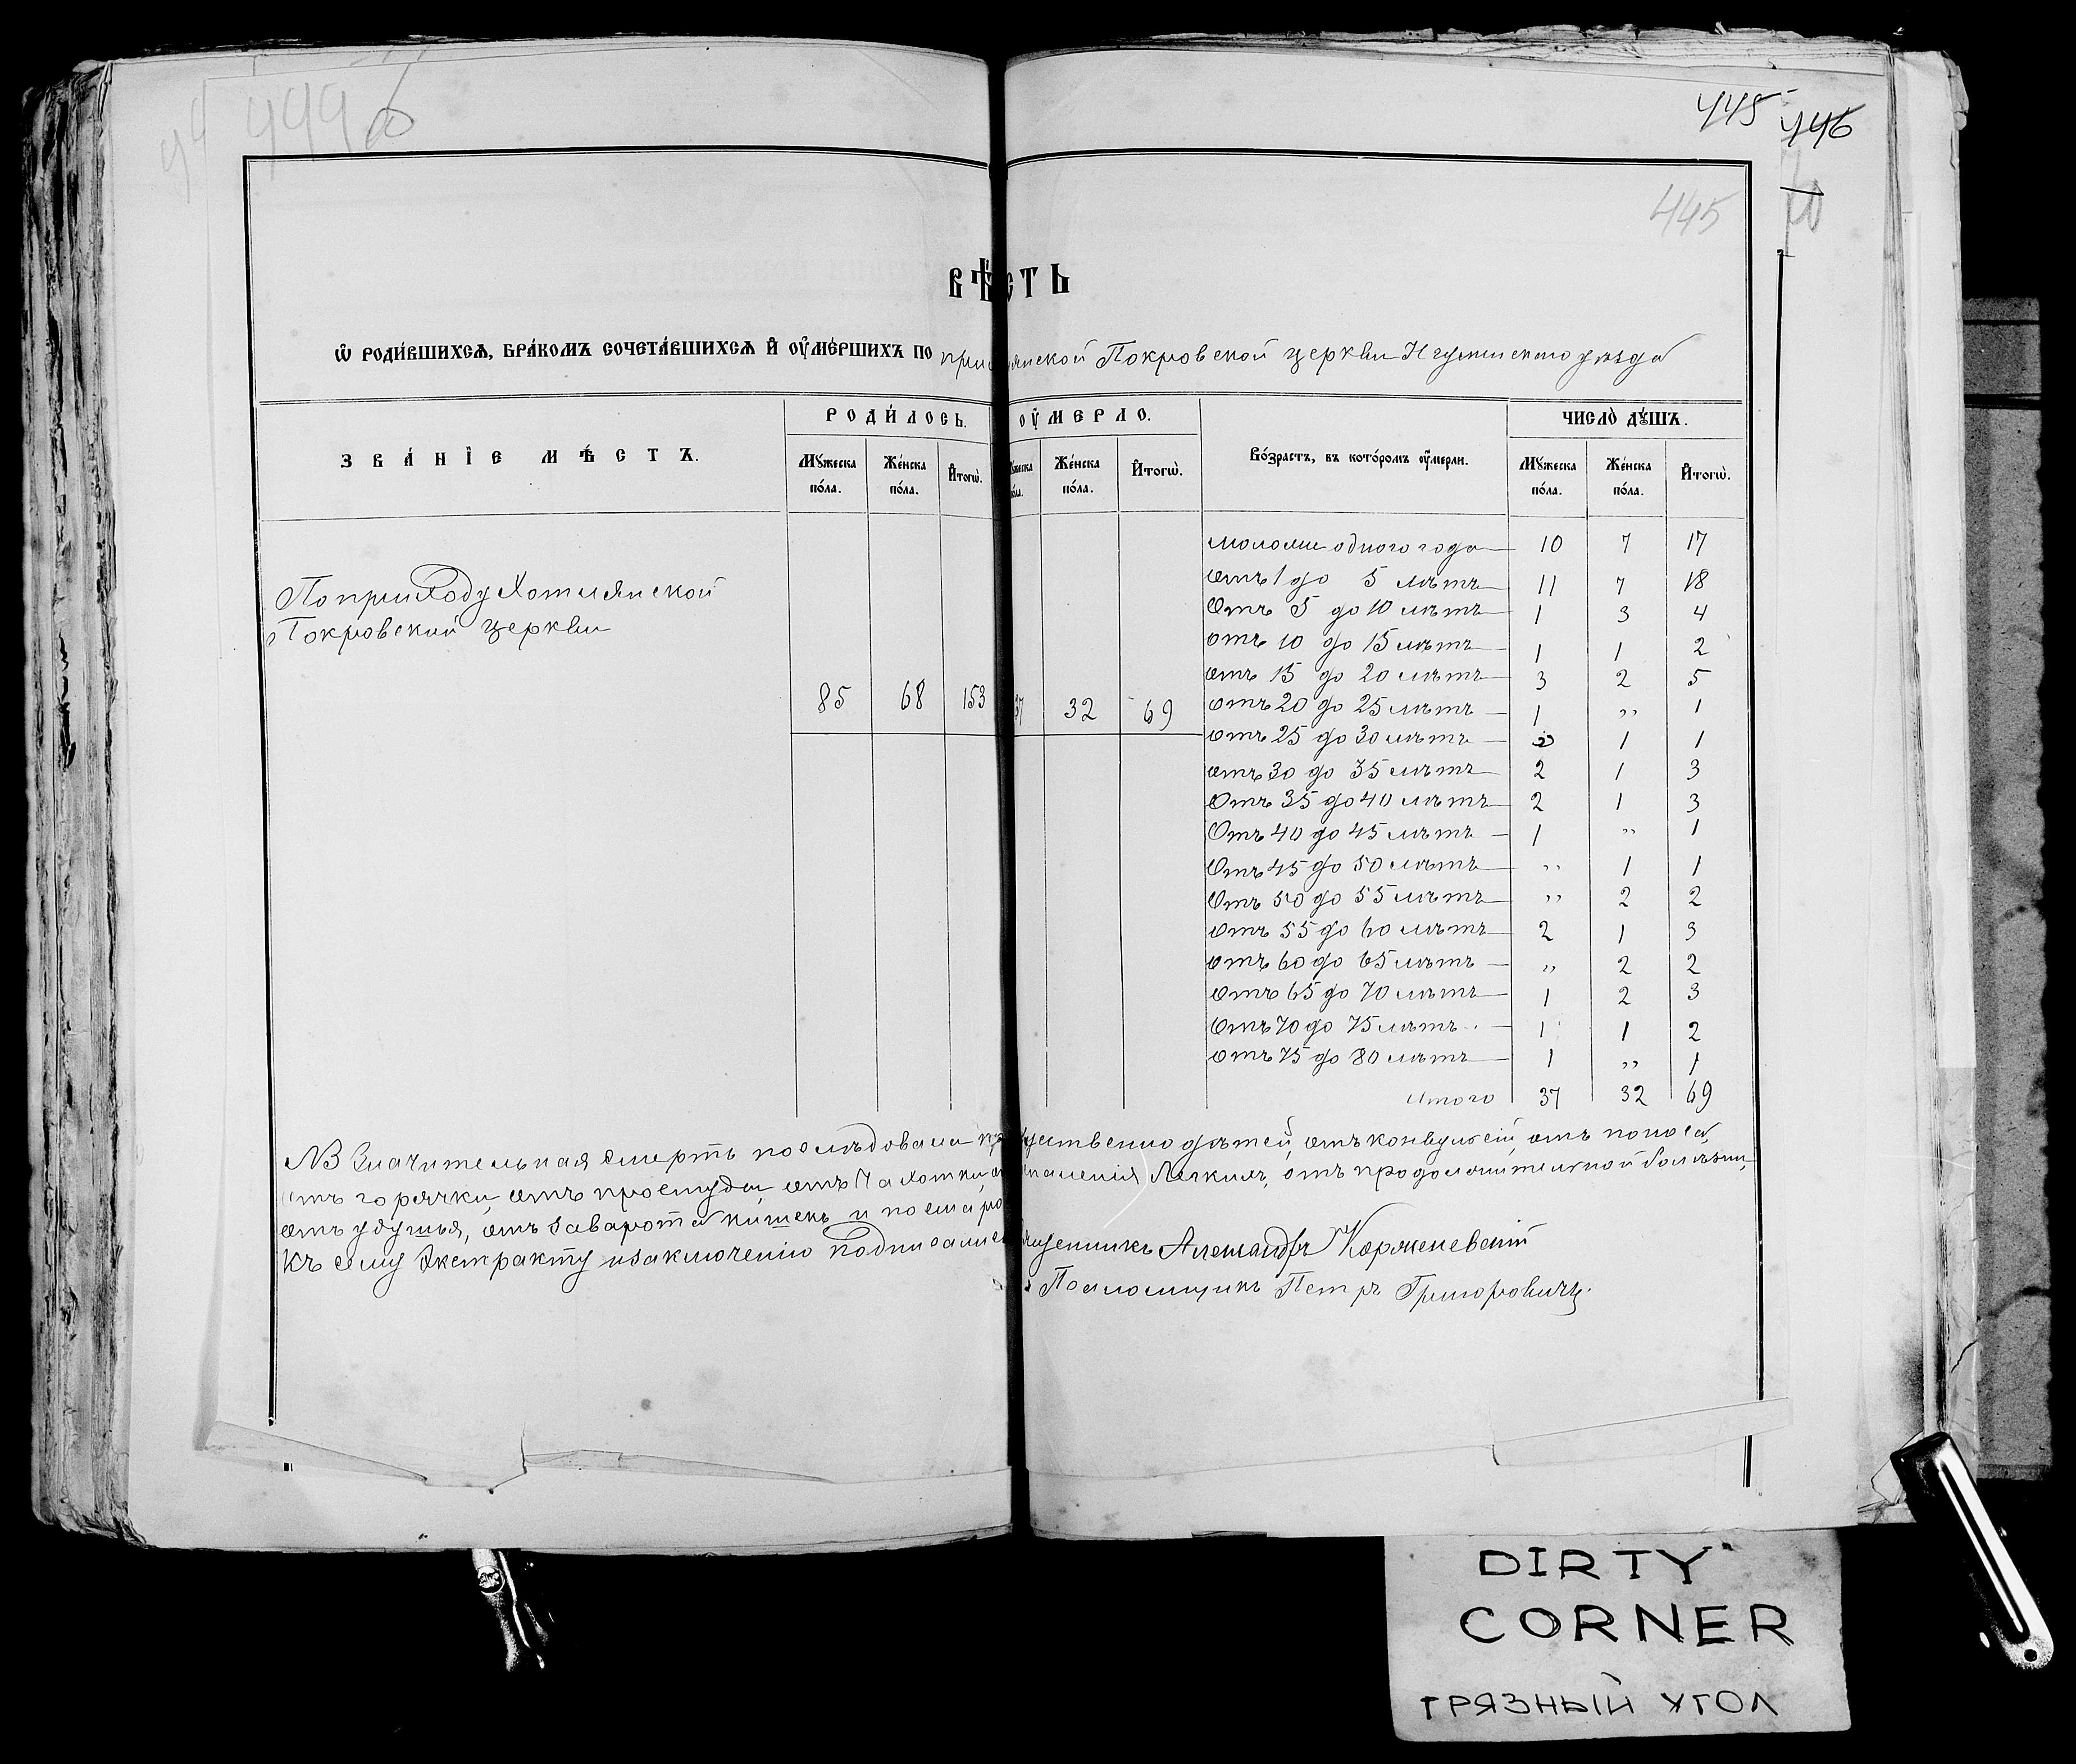 444об
445 446
445
ВѢСТЬ
Ѡ РОДИ́ВШИХСѦ, БРА́КОМЪ СОЧЕТА́ВШИХСѦ И҆ ОУ҆МЕ́РШИХЪ ПО Покровской церкви Игуменскаго уѣзда
ЗВА́НІЕ МѢ́СТЪ.
РОДИ́ЛОСЬ.
ОУ҆́МЕРЛО.
Во́зрастъ, въ кото́ромъ оу҆́мерли.
ЧИСЛО̀ ДꙊ́ШЪ.
Мꙋ́жеска по́ла. Же́нска по́ла. И҆того̀. Же́нска по́ла. И҆того̀. Мꙋ́жеска по́ла. Же́нска по́ла. И҆того̀.
По приходу Хотлянской
Покровской церкви
85 68 153 37 32 69
моложе одного года 10 7 17
отъ 1 до 5 лѣтъ 11 7 18
Отъ 5 до 10 лѣтъ 1 3 4
отъ 10 до 15 лѣтъ 1 1 2
отъ 15 до 20 лѣтъ 3 2 5
отъ 20 до 25 лѣтъ 1 „ 1
отъ 25 до 30 лѣтъ „ 1 1
отъ 30 до 35 лѣтъ 2 1 3
Отъ 35 до 40 лѣтъ 2 1 3
Отъ 40 до 45 лѣтъ 1 „ 1
Отъ 45 до 50 лѣтъ „ 1 1
Отъ 50 до 55 лѣтъ „ 2 2
Отъ 55 до 60 лѣтъ 2 1 3
отъ 60 до 65 лѣтъ „ 2 2
отъ 65 до 70 лѣтъ 1 2 3
Отъ 70 до 75 лѣтъ 1 1 2
отъ 75 до 80 лѣтъ 1 „ 1
итого 37 32 69
NB Значительная смерть послѣдовала дѣтей, отъ конвульсій, отъ поноса,
отъ горячки, отъ простуды, отъ Чахотки, Легкихъ, отъ продолжительной болѣзни,
отъ удушья, отъ Заворота кишекъ и
Къ сему Экстракту и заключенію подписались Александръ Корженевскій
Псаломщикъ Петръ Григоровичъ.
DIRTY
CORNER
ГРЯЗНЫЙ УГОЛ